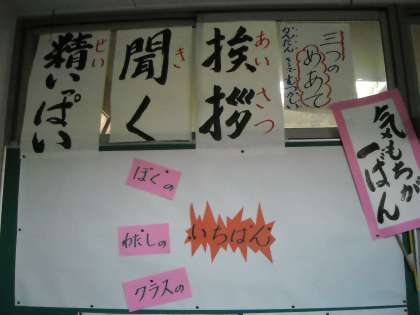 三つの
めあて
あいさつ
挨拶
き
聞く
せい
精いっぱい
気もちが
一ばん
ぼくの
わたしの
クラスの
いちばん